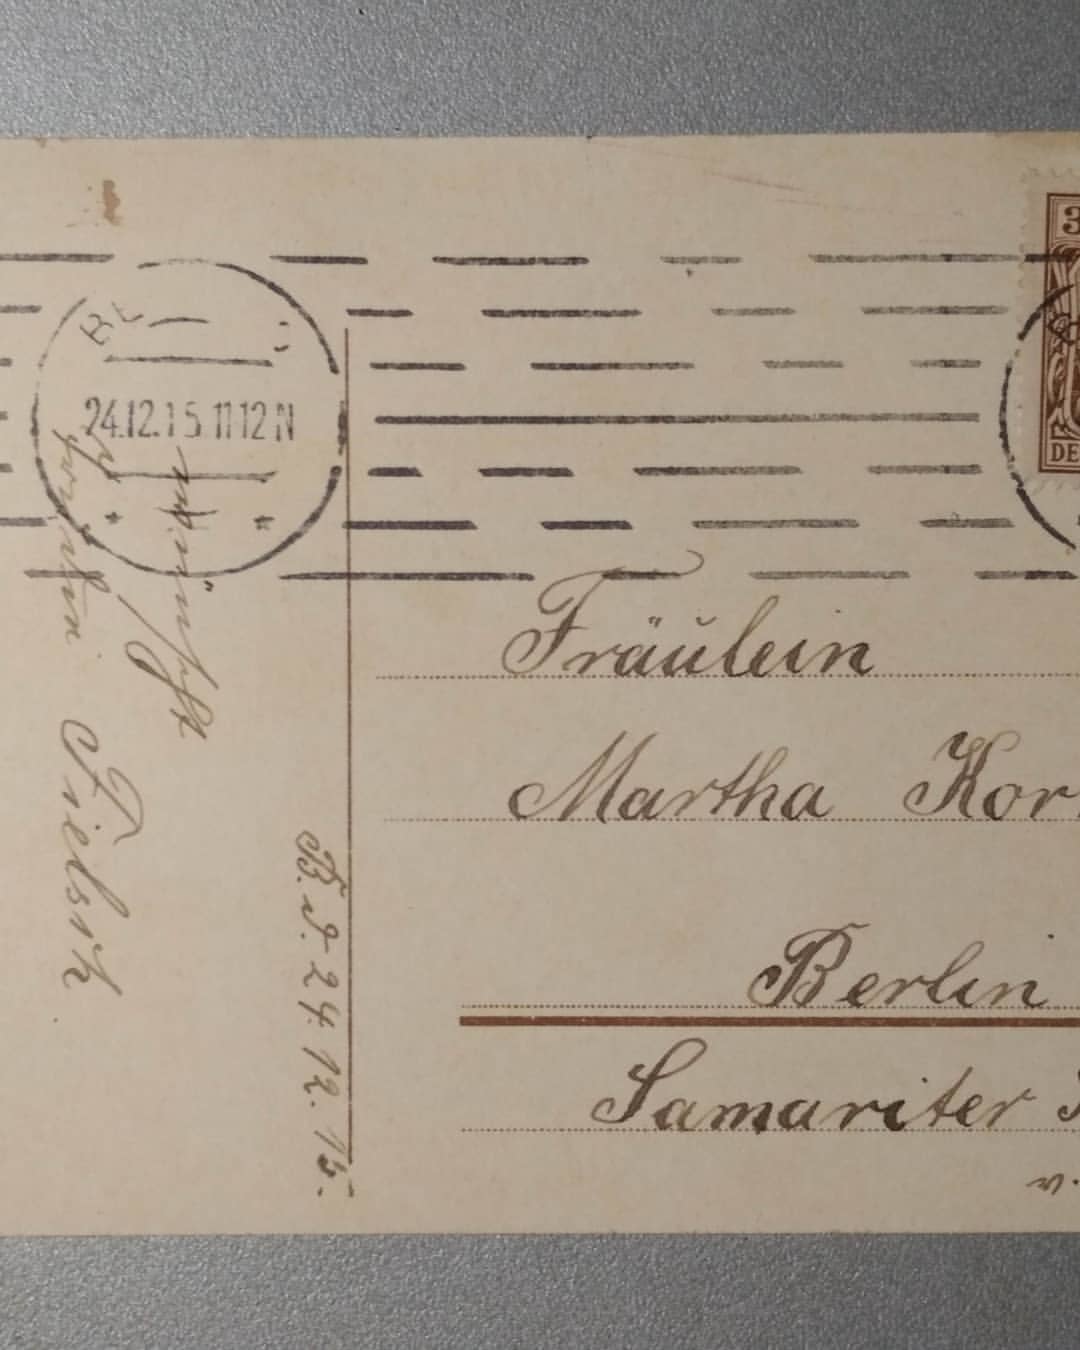 24.12.15 11-12 N
3
DE
wünscht
B. d. 24. 12. 15.
Fräulein
Martha Kor
Berlin
Samariter